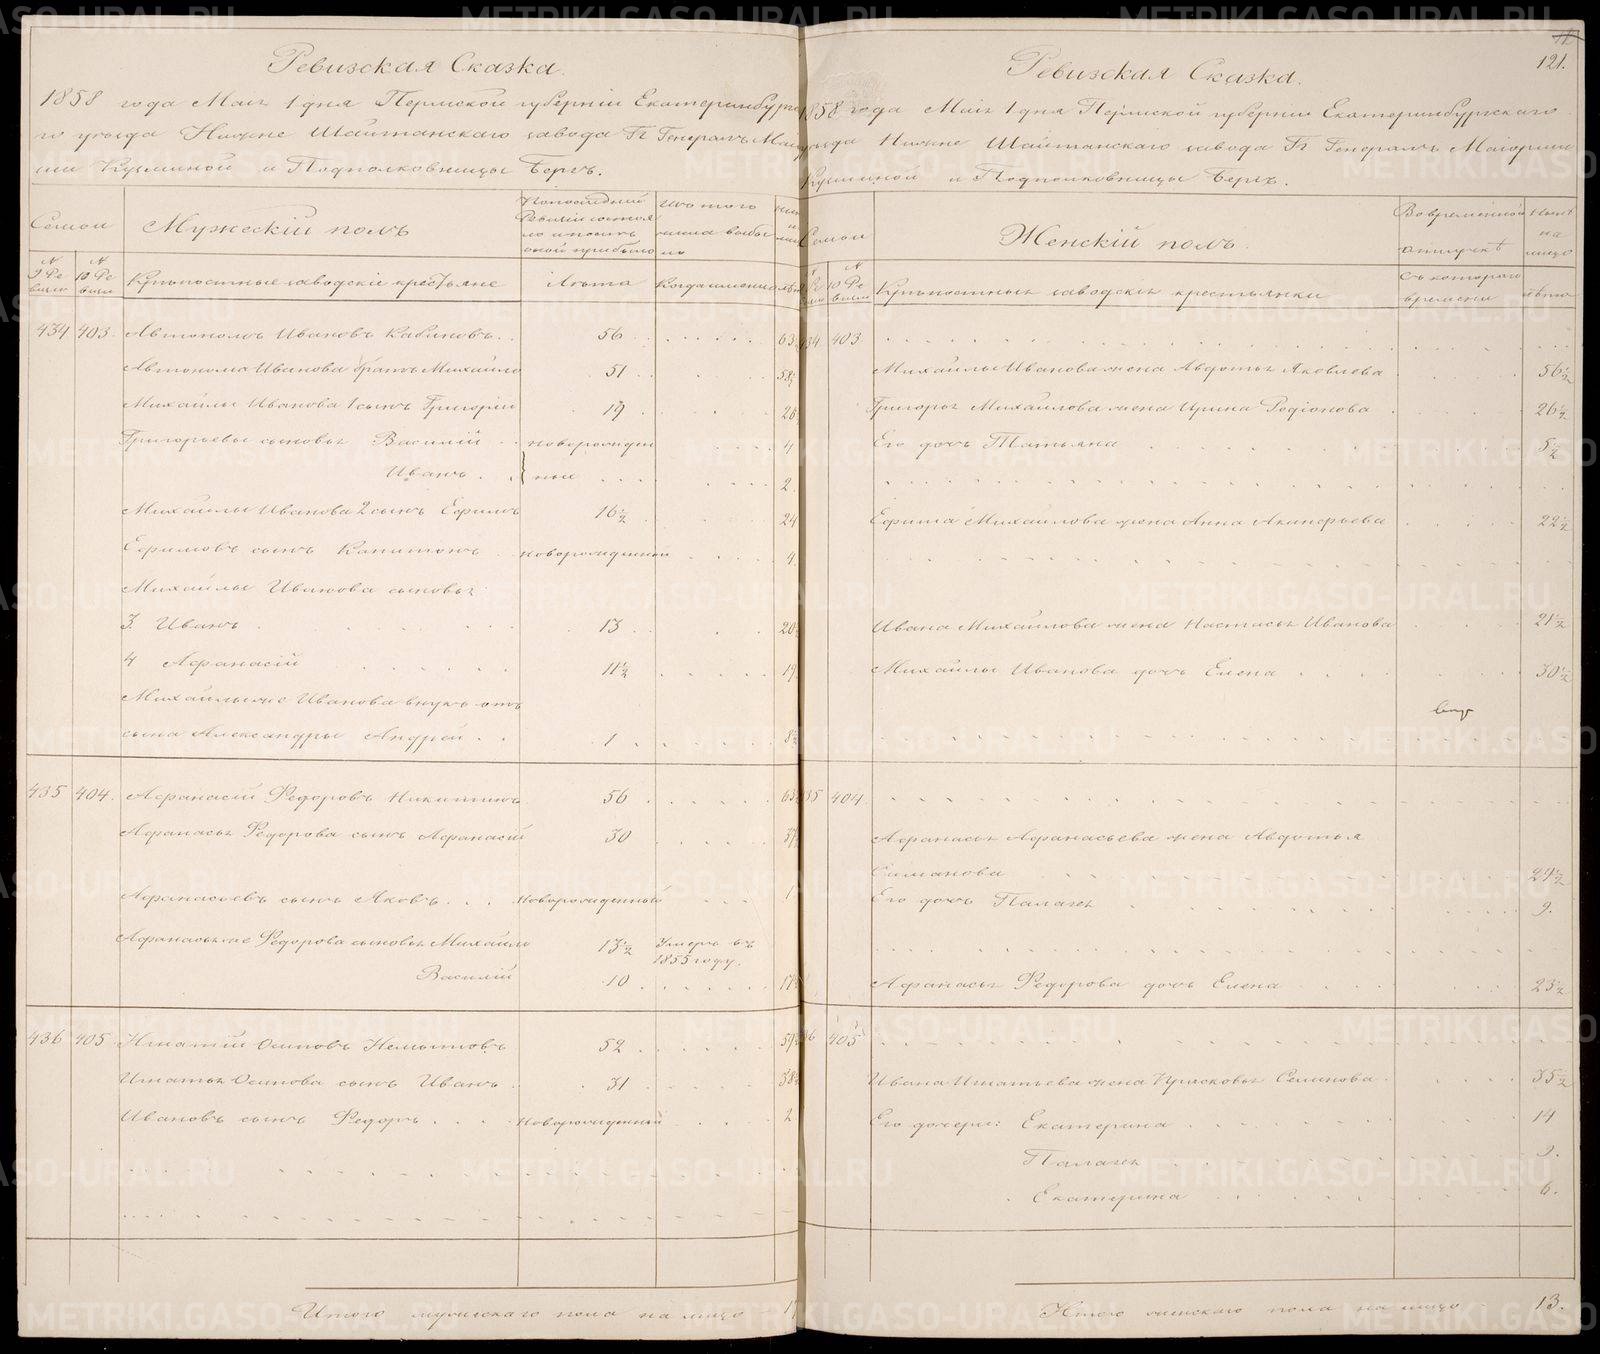 Ревизская Сказка.
1858 года Маія 1 дня Пермской губерніи Екатеринбургска
го уезда Нижне Шайтанскаго завода Гг Генералъ Маіор
ши Кузминой и Подполковницы Бергъ.
Семьи
Мужескій полъ
По последней Ревизіи состоя
ло и после оной прибыло
Изъ того числа выбы
ло
№ 9 Ре
визіи
№ 10 Ре
визіи
Крепостные заводскіе крестьяне
Лета
Когда именно
434 403. Автономъ Ивановъ Кабиновъ. 56 63
Автонома Иванова братъ Михайло 51 58½
Михайлы Иванова 1 сынъ Григорій 19 26
Григорьевы сыновья Василій новорожден 4
Иванъ ные 2
Михайлы Иванова 2 сынъ Ефимъ 16½ 24
Ефимовъ сынъ Капитонъ новорожденной 4
Михайлы Иванова сыновья
3. Иванъ 13 20
4 Афанасій 11½ 19
Михайлы же Иванова внукъ отъ
сына Александры Андрей 1 8½
435 404. Афанасій Федоровъ Никитинъ 56 63
Афанасья Федорова сынъ Афанасій 30 37
Афанасьевъ сынъ Яковъ Новорожденный 1
Афанасья же Федорова сыновья Михайло 13½ Умеръ въ
1855 году.
Василій 10 17
436 405 Игнатій Осиповъ Немытовъ 52 59
Игнатья Осипова сынъ Иванъ 31 38
Ивановъ сынъ Федоръ Новорожденный 2
Итого мужескаго пола на лицо 17
121.
Ревизская Сказка.
1858 года Маія 1 дня Пермской губерніи Екатеринбургскаго
уезда Нижне Шайтанскаго завода Гг Генералъ Маіорши
Кузминой и Подполковницы Бергъ.
Семьи
Женскій полъ.
Во временной
отлучке
Ныне
на
лицо
№ 10 Ре
визіи
Крепостныя заводскія крестьянки
Съ котораго
времени
лета
434 403
Михайлы Иванова жена Авдотья Яковлева 56½
Григорья Михайлова жена Ирина Родіонова 26½
Его дочь Татьяна 5½
Ефима Михайлова жена Анна Аканфьева 22½
Ивана Михайлова жена Настасья Иванова 21½
Михайлы Иванова дочь Елена 30½
435 404.
Афанасья Афанасьева жена Авдотья
Симанова 27½
Его дочь Палагея 9.
Афанасья Федорова дочь Елена 23½
436 405
Ивана Игнатьева жена Прасковья Семенова 35½
Его дочери: Екатерина 14
Палагея 9.
Екатерина 6.
Итого женскаго пола на лицо 13.
METRIKI.GASO-URAL.RU